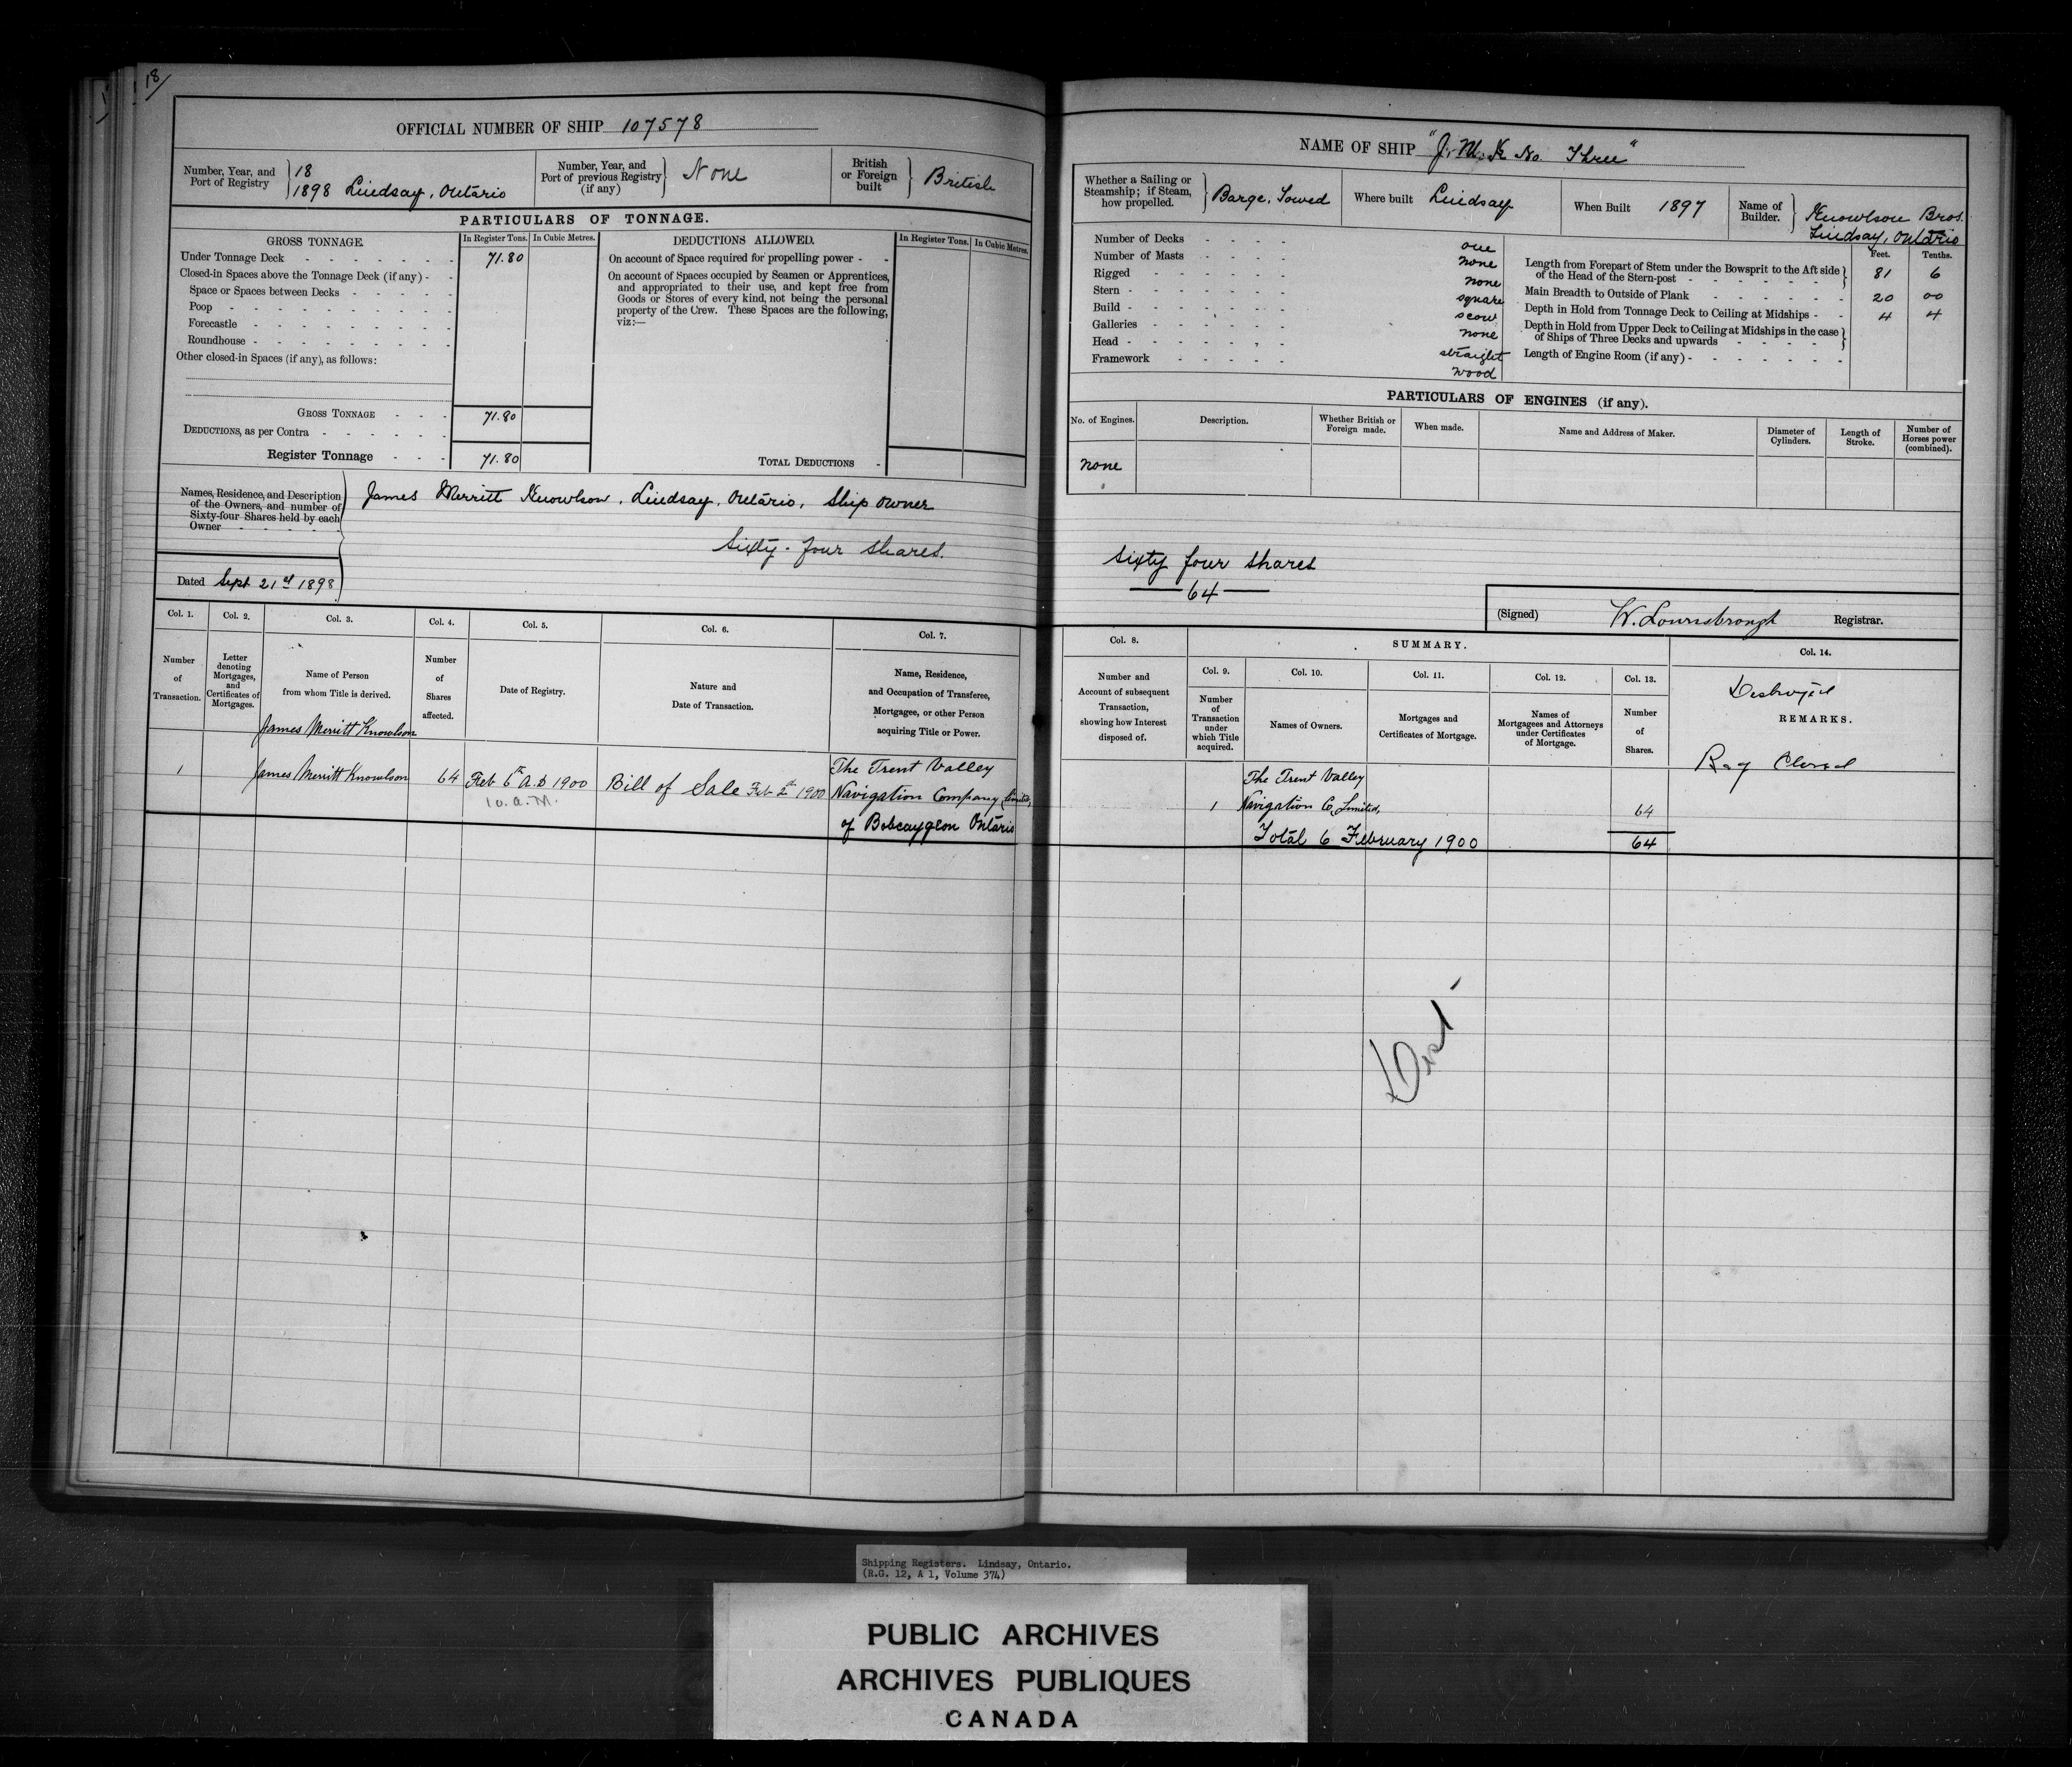 18/
OFFICIAL NUMBER OF SHIP 107578
Number, Year, and Port of Registry } 18 1898 Lindsay, Ontario
Number, Year, and Port of previous Registry (if any) } None
British or Foreign built } British
PARTICULARS OF TONNAGE.
GROSS TONNAGE. In Register Tons. In Cubic Metres.
Under Tonnage Deck 71.80
Closed-in Spaces above the Tonnage Deck (if any)
Space or Spaces between Decks
Poop
Forecastle
Roundhouse
Other closed-in Spaces (if any), as follows:
GROSS TONNAGE 71.80
DEDUCTIONS, as per Contra
Register Tonnage 71.80
DEDUCTIONS ALLOWED. In Register Tons. In Cubic Metres.
On account of Space required for propelling power
On account of Spaces occupied by Seamen or Apprentices,
and appropriated to their use, and kept free from
Goods or Stores of every kind, not being the personal
property of the Crew. These Spaces are the following,
viz:—
TOTAL DEDUCTIONS
Names, Residence, and Description
of the Owners, and number of
Sixty-four Shares held by each
Owner
James Merritt Knowlson, Lindsay, Ontario, Ship owner
Sixty-four shares.
Dated Sept 21st 1898
Col. 1. Col. 2. Col. 3. Col. 4. Col. 5. Col. 6. Col. 7.
Number of Transaction.
Letter denoting Mortgages, and Certificates of Mortgages.
Name of Person from whom Title is derived.
Number of Shares affected.
Date of Registry.
Nature and Date of Transaction.
Name, Residence, and Occupation of Transferee, Mortgagee, or other Person acquiring Title or Power.
James Merritt Knowlson
1 James Merritt Knowlson 64 Feb 6th A.D 1900 Bill of Sale Feb 2nd 1900 The Trent Valley
10. a.M. Navigation Company Limited,
of Bobcaygeon Ontario
NAME OF SHIP "J. M. K No. Three"
Whether a Sailing or Steamship; if Steam, how propelled. } Barge, Towed
Where built Lindsay
When Built 1897
Name of Builder. } Knowlson Bros. Lindsay, Ontario
Number of Decks one
Number of Masts none
Rigged none
Stern square
Build scow
Galleries none
Head straight
Framework wood
Feet. Tenths.
Length from Forepart of Stem under the Bowsprit to the Aft side of the Head of the Stern-post } 81 6
Main Breadth to Outside of Plank 20 00
Depth in Hold from Tonnage Deck to Ceiling at Midships 4 4
Depth in Hold from Upper Deck to Ceiling at Midships in the case of Ships of Three Decks and upwards }
Length of Engine Room (if any)
PARTICULARS OF ENGINES (if any).
No. of Engines. Description. Whether British or Foreign made. When made. Name and Address of Maker. Diameter of Cylinders. Length of Stroke. Number of Horses power (combined).
none
Sixty four shares
64
(Signed) W. Lownsbrough Registrar.
Col. 8. SUMMARY. Col. 14.
Col. 9. Col. 10. Col. 11. Col. 12. Col. 13.
Number and Account of subsequent Transaction, showing how Interest disposed of.
Number of Transaction under which Title acquired.
Names of Owners.
Mortgages and Certificates of Mortgage.
Names of Mortgagees and Attorneys under Certificates of Mortgage.
Number of Shares.
Destroyed
REMARKS.
Reg Closed
The Trent Valley
1 Navigation Co, Limited, 64
Total 6 February 1900 64
Shipping Registers. Lindsay, Ontario.
(R.G. 12, A 1, Volume 374)
PUBLIC ARCHIVES
ARCHIVES PUBLIQUES
CANADA